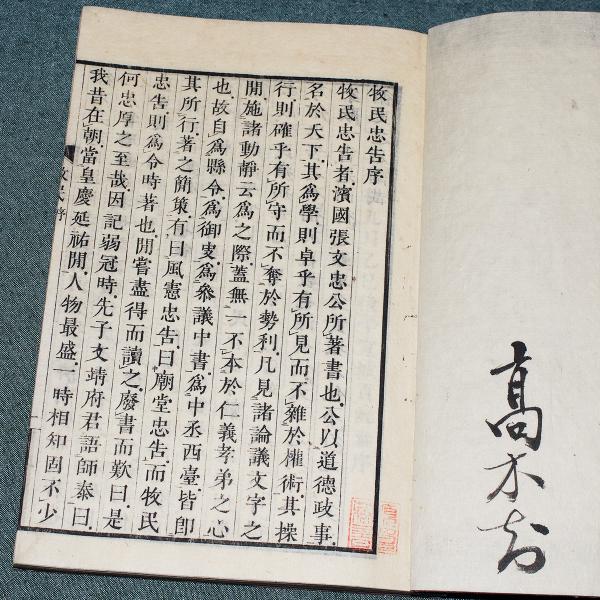 牧民忠告序
牧民忠告者濱國張文忠公所著書也公以道德政事
名於天下其爲學則卓乎有所見而不雜於權術其操
行則確乎有所守而不奪於勢利凡見諸論議文字之
開施諸動靜云爲之際蓋無一不本於仁義孝弟之心
也故自爲縣令爲御叏爲叅議中書爲中丞西臺皆卽
其所行著之簡策有曰風憲忠告曰廟堂忠告而牧民
忠告則爲令時著也閒嘗盡得而讀之廢書而歎曰是
何忠厚之至哉因記弱冠時先子文靖府君語師泰曰
我昔在朝當皇慶延祐閒人物最盛一時相知固不少
牧民序
高木